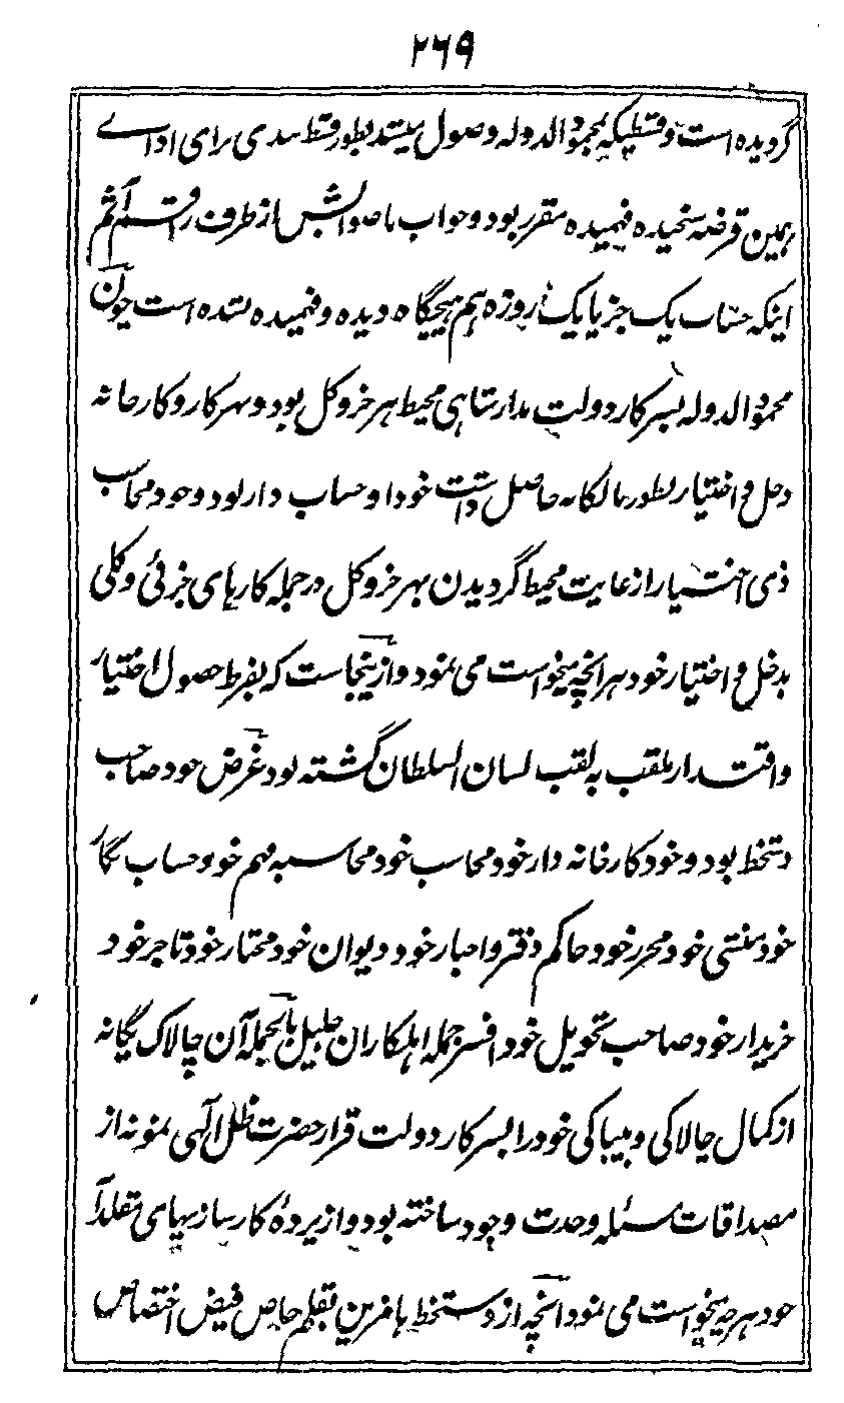 ۲۶۹
گردیده است و قسطیکه بمجموالدوله وصول میشد بطور قسط بندی برای ادائے
همین قرضه سنجیده فهمیده مقرر بود و جواب باصوابش از طرف راقم آثم
اینکه حساب یک جز یا یک روزه هم هیچگاه دیده و فهمیده نشده است چون
محموالدوله بسرکار دولت مدار شاهی محیط هر جزو کل بود و بهر کار و کارخانه
دخل و اختیار بطور مالکانه حاصل داشت خود او حساب دار بود و خود محاسب
ذی اختیار از غایت محیط گردیدن بهر جزو کل در جمله کارهای جزئی و کلی
بدخل و اختیار خود هر آنچه میخواست می نمود و ازینجاست که بفرط حصول اختیار
و اقتدار ملقب به لقب لسان السلطان گشته بود غرض خود صاحب
دستخط بود و خود کارخانه دار خود محاسب خود محاسبه فهم خود حساب نگار
خود منشی خود محرر خود حاکم دفتر و اخبار خود دیوان خود مختار خود تاجر خود
خریدار خود صاحب تحویل خود افسر جمله اهلکاران جلیل بالجمله آن چالاک یگانه
از کمال چالاکی و بیباکی خود را بسرکار دولت قرار حضرت ظل الهی نمونه از
مصداقات مسئله وحدت وجود ساخته بود و از پرده کارسازیهای تقلد
خود هر چه میخواست می نمود آنچه از دستخط ها مزین بقلم خاص فیض اختصاص